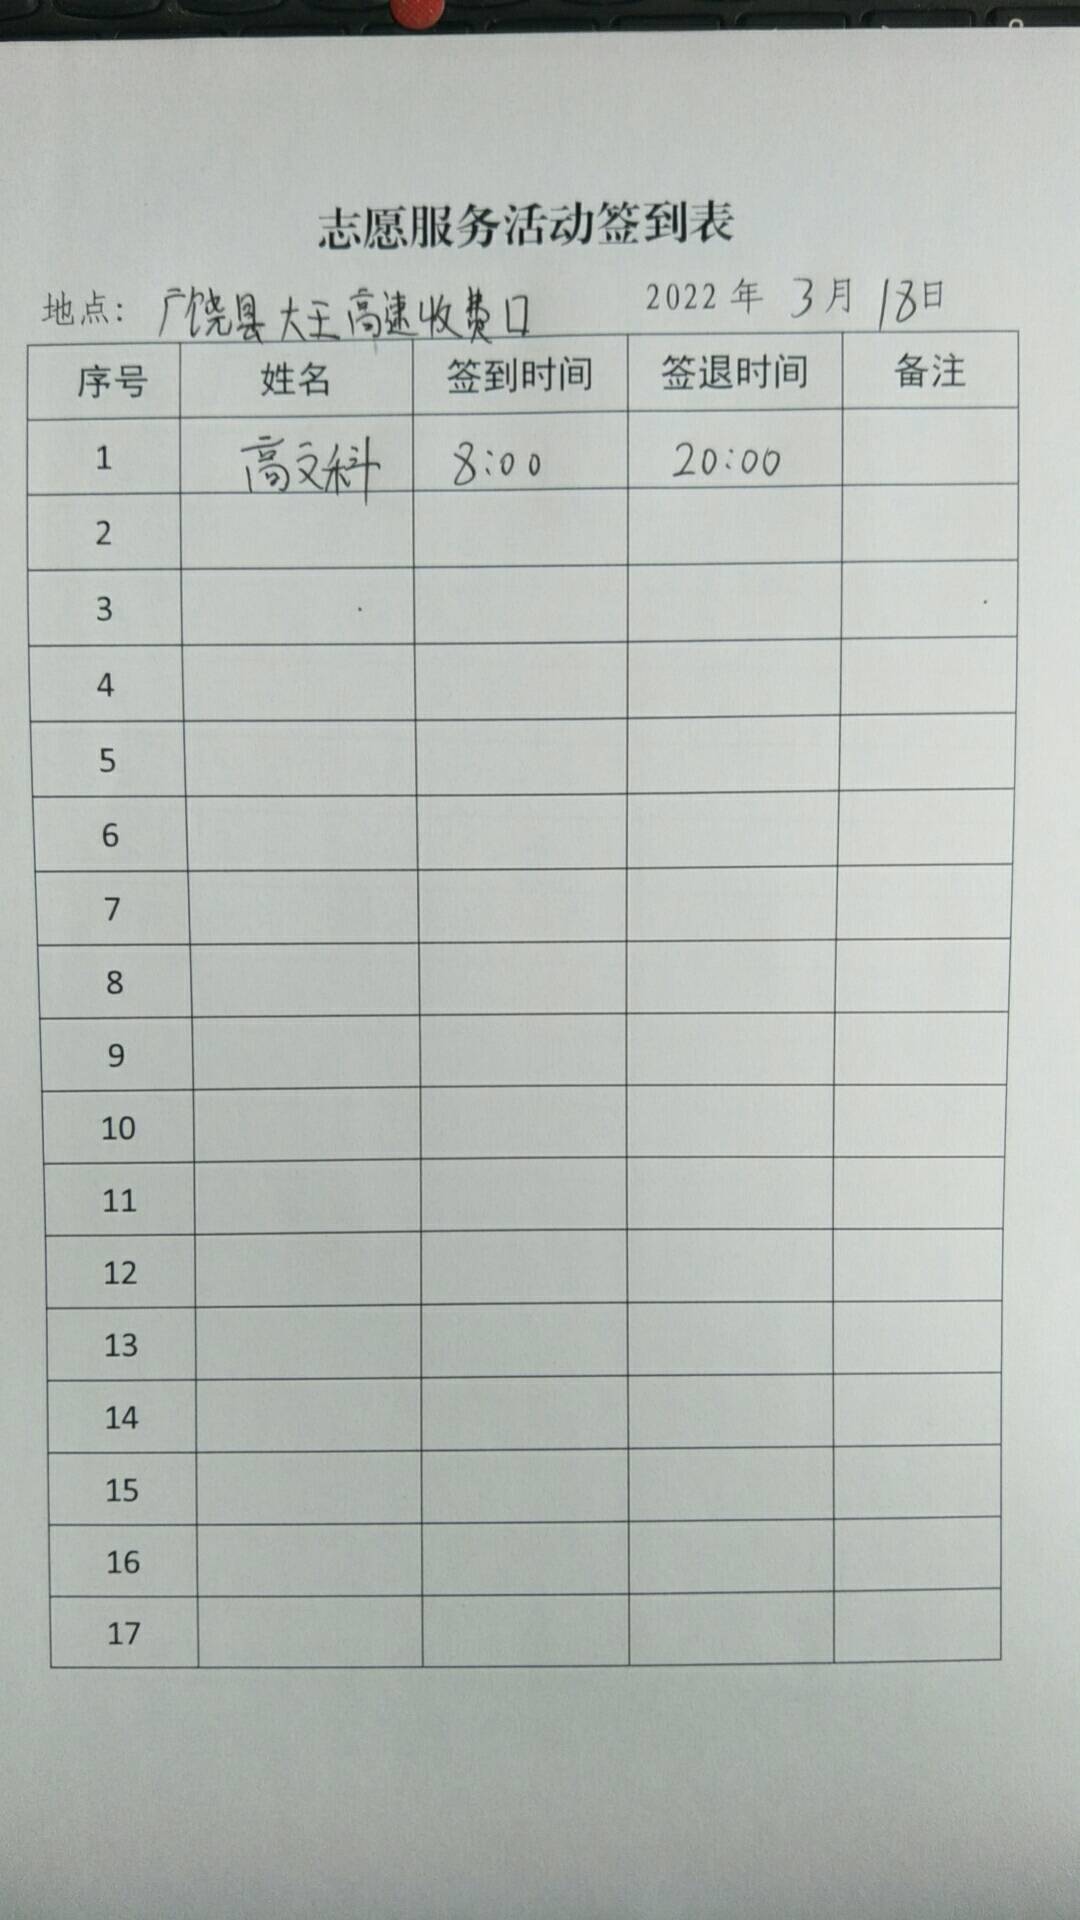 志愿服务活动签到表
地点：广饶县大王高速收费口 2022年 3月 18日
序号 姓名 签到时间 签退时间 备注
1 高文科 8:00 20:00
2
3
4
5
6
7
8
9
10
11
12
13
14
15
16
17